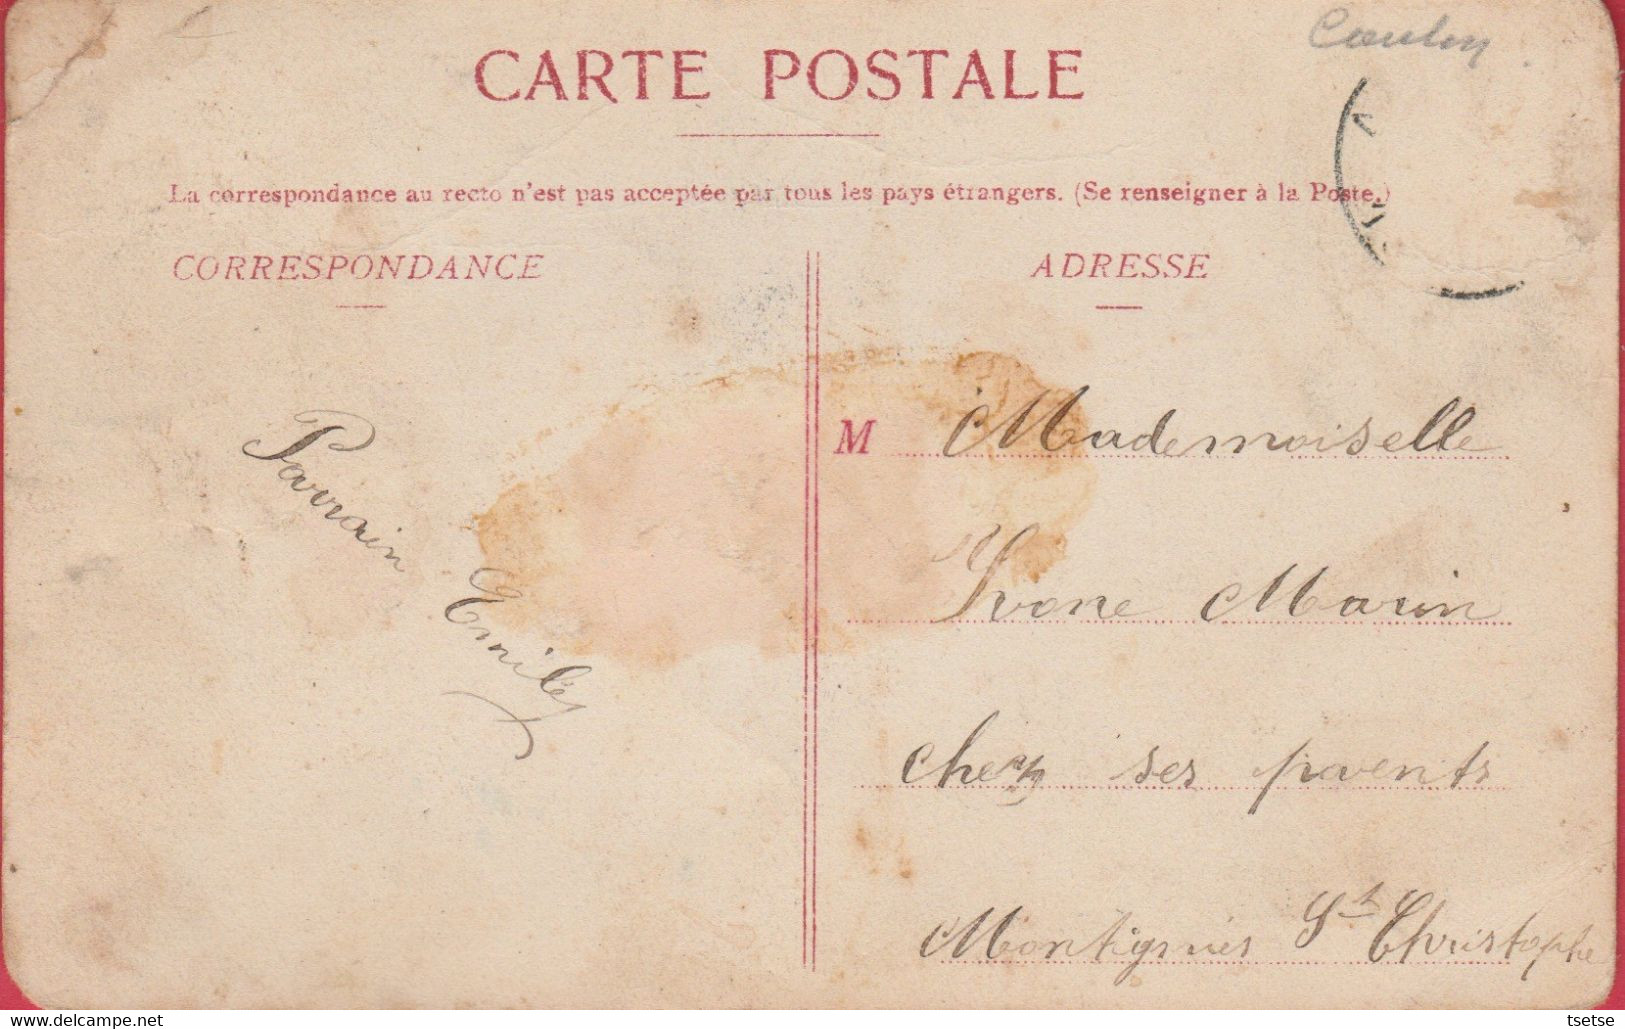 CARTE POSTALE
La correspondance au recto n'est pas acceptée par tous les pays étrangers. (Se renseigner à la Poste.)
CORRESPONDANCE
ADRESSE
Parrain Emile
M Mademoiselle
Yvone Marin
chez ses parents
Montignies St Christophe
tsetse